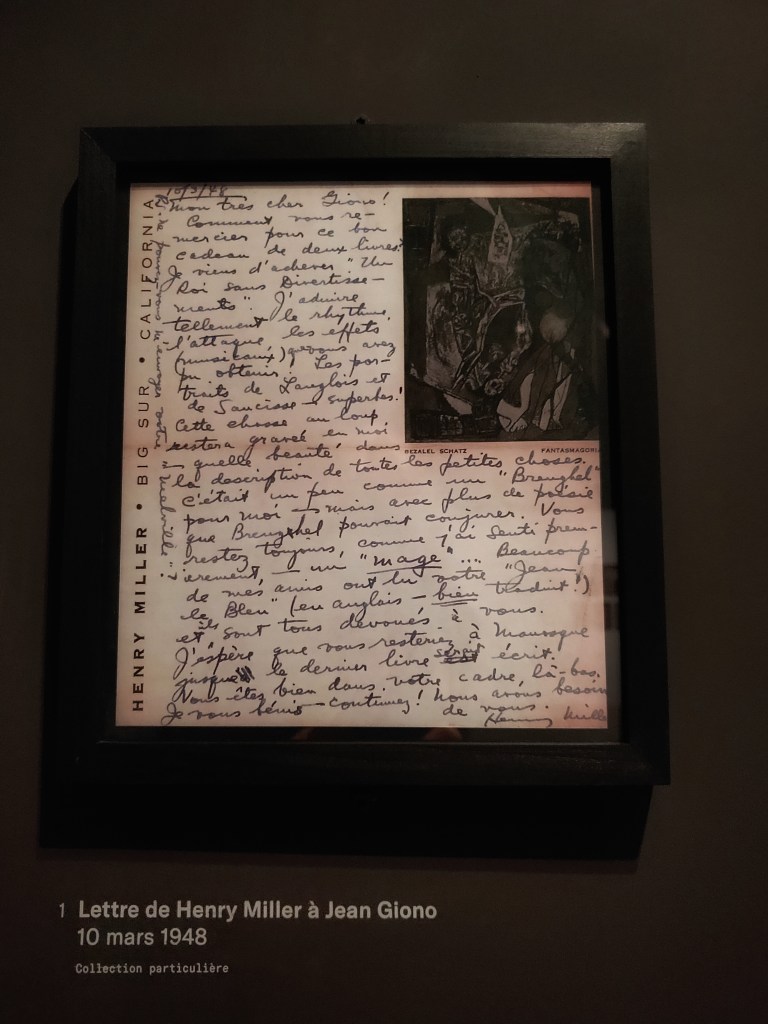 10/3/48
Mon très cher Giono!
Comment vous re-
mercier pour ce bon
cadeau de deux livres?
Je viens d'achever "Un
Roi sans Divertisse-
ments". J'admire
tellement le rhythme,
l'attaque, les effets
(musicaux) que vous avez
pu obtenir. Les por-
traits de Langlois et
de Saucisse – superbes!
Cette chasse au loup
restera gravée en moi
– quelle beauté dans
la description de toutes les petites choses.
C'était un peu comme un "Breughel"
pour moi – mais avec plus de poésie
que Breughel pouvait conjurer. Vous
restez toujours, comme j'ai senti prem-
ièrement, – un "mage" .... Beaucoup
de mes amis ont lu votre "Jean
le Bleu" (en anglais – bien traduit!)
et ils sont tous devoués à vous.
J'espère que vous resteriez à Manosque
jusque le dernier livre serait écrit.
Vous êtes bien dans votre cadre, là-bas.
Je vous bénis – continuez! Nous avons besoin
de vous.
Henry Miller
P.S. pouvez-vous m'envoyer votre "Melville"?
HENRY MILLER • BIG SUR • CALIFORNIA
BEZALEL SCHATZ
FANTASMAGORIA
1 Lettre de Henry Miller à Jean Giono
10 mars 1948
Collection particulière